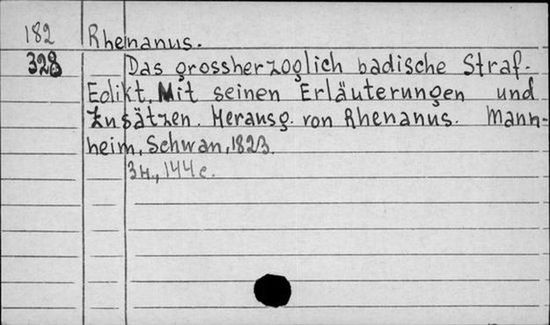 182 Rhenanus.
328 Das grossherzoglich badische Straf-
Edikt. Mit seinen Erläuterungen und
Zusätzen. Herausg. von Rhenanus. Mann-
heim, Schwan, 1823.
144 c.